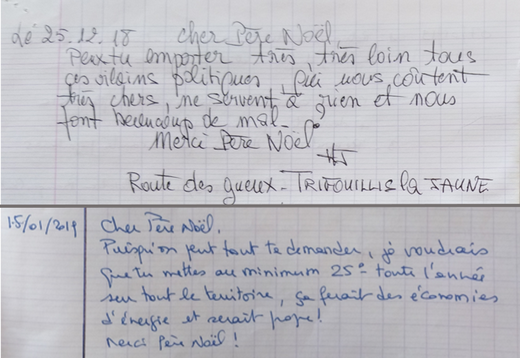 Le 25.12.18 Cher Père Noël,
Peux tu emporter très, très loin tous
ces vilains politiques qui nous coutent
très chers, ne servent à rien et nous
font beaucoup de mal.
Merci Père Noël.
Route des gueux - TRIFOUILLIS la JAUNE
15/01/2019
Cher Père Noël,
Puisqu'on peut tout te demander, je voudrais
que tu mettes au minimum 25° toute l'année
sur tout le territoire, ça ferait des économies
d'énergie et serait propre!
Merci Père Noël!